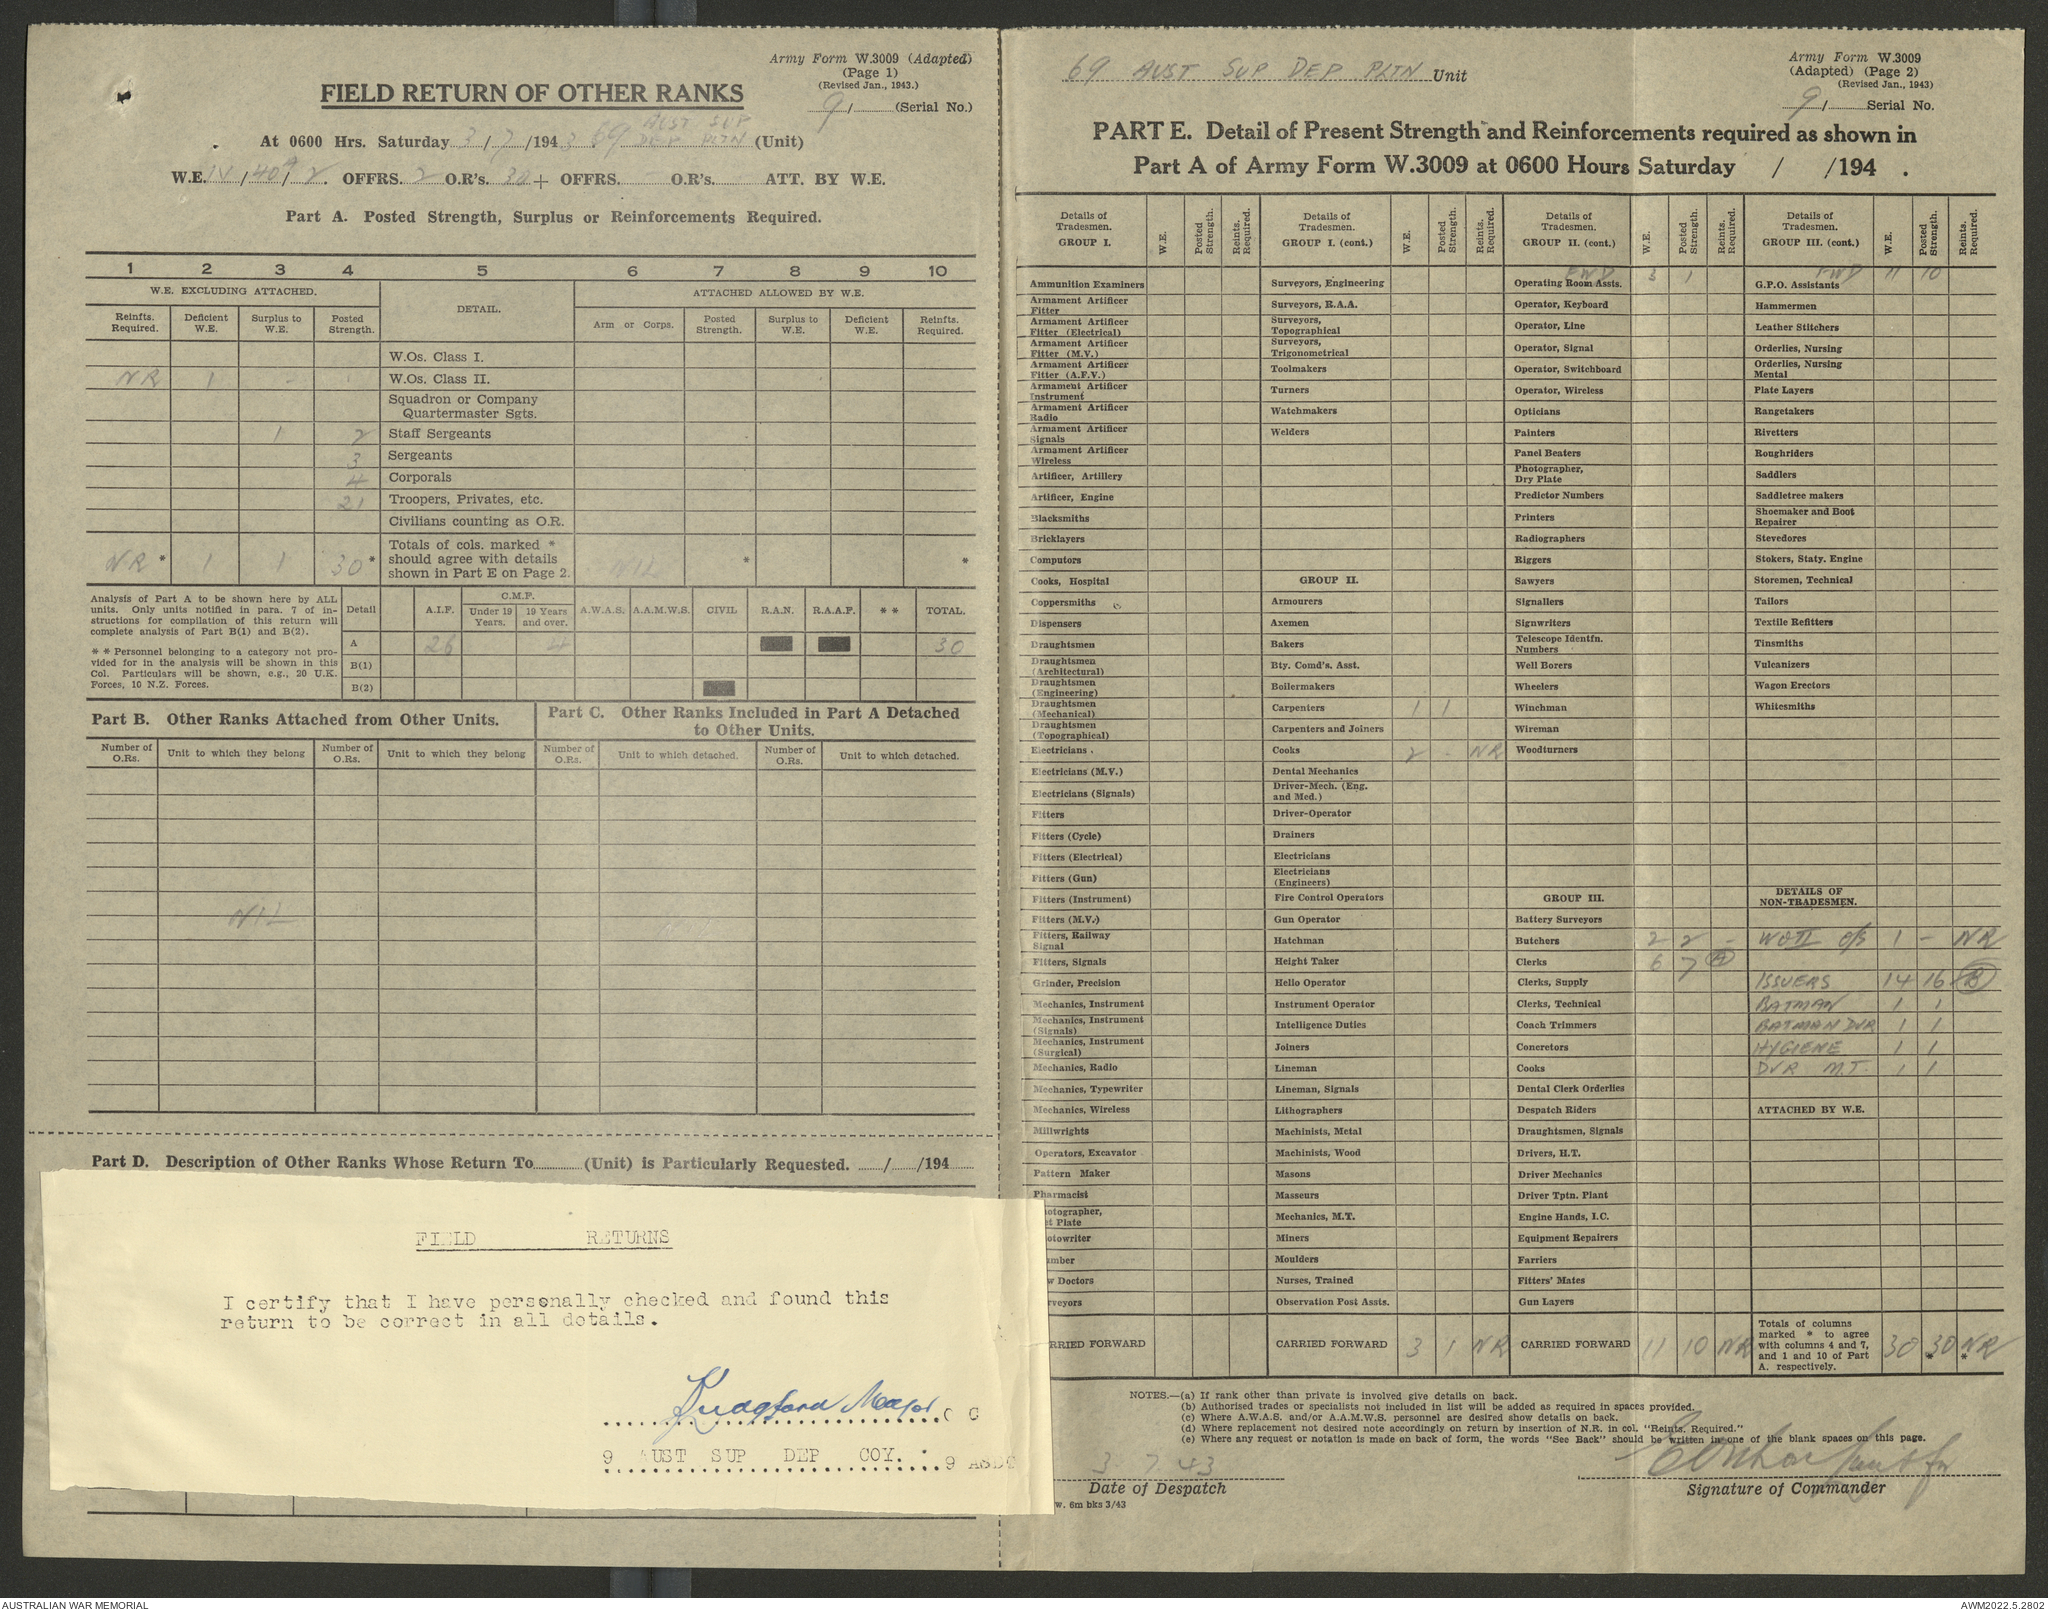 Army Form W.3009 (Adapted)
(Page 1)
(Revised Jan., 1943.)
FIELD RETURN OF OTHER RANKS
9/ (Serial No.)
At 0600 Hrs. Saturday 3/7/1943 69 AUST SUP DEP PLTN (Unit)
W.E. IV/40A/2. OFFRS. 2 O.R's. 30 + OFFRS. O.R's. ATT. BY W.E.
Part A. Posted Strength, Surplus or Reinforcements Required.
1 2 3 4 5 6 7 8 9 10
W.E. EXCLUDING ATTACHED. DETAIL. ATTACHED ALLOWED BY W.E.
Reinfts. Required. Deficient W.E. Surplus to W.E. Posted Strength. Arm or Corps. Posted Strength. Surplus to W.E. Deficient W.E. Reinfts. Required.
W.Os. Class I.
NR 1 - W.Os. Class II.
Squadron or Company
Quartermaster Sgts.
1 2 Staff Sergeants
3 Sergeants
4 Corporals
21 Troopers, Privates, etc.
Civilians counting as O.R.
Totals of cols. marked *
NR * 1 1 30 * should agree with details * *
shown in Part E on Page 2. NIL
Analysis of Part A to be shown here by ALL
units. Only units notified in para. 7 of in-
structions for compilation of this return will
complete analysis of Part B(1) and B(2).
* * Personnel belonging to a category not pro-
vided for in the analysis will be shown in this
Col. Particulars will be shown, e.g., 20 U.K.
Forces, 10 N.Z. Forces.
Detail A.I.F. C.M.F. Under 19 Years. 19 Years and over. A.W.A.S. A.A.M.W.S. CIVIL R.A.N. R.A.A.F. * * TOTAL.
A 26 4 30
B(1)
B(2)
Part B. Other Ranks Attached from Other Units.
Part C. Other Ranks Included in Part A Detached
to Other Units.
Number of O.Rs. Unit to which they belong Number of O.Rs. Unit to which they belong Number of O.Rs. Unit to which detached. Number of O.Rs. Unit to which detached.
NIL
Part D. Description of Other Ranks Whose Return To (Unit) is Particularly Requested. / /194
FIELD RETURNS
I certify that I have personally checked and found this
return to be correct in all details.
Major O C
9 AUST SUP DEP COY. 9 ASDC
69 AUST SUP DEP PLTN Unit
Army Form W.3009
(Adapted) (Page 2)
(Revised Jan., 1943)
9/ Serial No.
PART E. Detail of Present Strength and Reinforcements required as shown in
Part A of Army Form W.3009 at 0600 Hours Saturday / /194 .
Details of Tradesmen. GROUP I. W.E. Posted Strength. Reints. Required.
Ammunition Examiners
Armament Artificer Fitter
Armament Artificer Fitter (Electrical)
Armament Artificer Fitter (M.V.)
Armament Artificer Fitter (A.F.V.)
Armament Artificer Instrument
Armament Artificer Radio
Armament Artificer Signals
Armament Artificer Wireless
Artificer, Artillery
Artificer, Engine
Blacksmiths
Bricklayers
Computors
Cooks, Hospital
Coppersmiths
Dispensers
Draughtsmen
Draughtsmen (Architectural)
Draughtsmen (Engineering)
Draughtsmen (Mechanical)
Draughtsmen (Topographical)
Electricians
Electricians (M.V.)
Electricians (Signals)
Fitters
Fitters (Cycle)
Fitters (Electrical)
Fitters (Gun)
Fitters (Instrument)
Fitters (M.V.)
Fitters, Railway Signal
Fitters, Signals
Grinder, Precision
Mechanics, Instrument
Mechanics, Instrument (Signals)
Mechanics, Instrument (Surgical)
Mechanics, Radio
Mechanics, Typewriter
Mechanics, Wireless
Millwrights
Operators, Excavator
Pattern Maker
Pharmacist
otographer, t Plate
otowriter
mber
w Doctors
rveyors
RRIED FORWARD
Details of Tradesmen. GROUP I. (cont.) W.E. Posted Strength. Reints. Required.
Surveyors, Engineering
Surveyors, R.A.A.
Surveyors, Topographical
Surveyors, Trigonometrical
Toolmakers
Turners
Watchmakers
Welders
GROUP II.
Armourers
Axemen
Bakers
Bty. Comd's. Asst.
Boilermakers
Carpenters 1 1
Carpenters and Joiners
Cooks 2 - NR
Dental Mechanics
Driver-Mech. (Eng. and Med.)
Driver-Operator
Drainers
Electricians
Electricians (Engineers)
Fire Control Operators
Gun Operator
Hatchman
Height Taker
Hello Operator
Instrument Operator
Intelligence Duties
Joiners
Lineman
Lineman, Signals
Lithographers
Machinists, Metal
Machinists, Wood
Masons
Masseurs
Mechanics, M.T.
Miners
Moulders
Nurses, Trained
Observation Post Assts.
CARRIED FORWARD 3 1 NR
Details of Tradesmen. GROUP II. (cont.) W.E. Posted Strength. Reints. Required.
FWD 3 1
Operating Room Assts.
Operator, Keyboard
Operator, Line
Operator, Signal
Operator, Switchboard
Operator, Wireless
Opticians
Painters
Panel Beaters
Photographer, Dry Plate
Predictor Numbers
Printers
Radiographers
Riggers
Sawyers
Signallers
Signwriters
Telescope Identfn. Numbers
Well Borers
Wheelers
Winchman
Wireman
Woodturners
GROUP III.
Battery Surveyors
Butchers 2 2 -
Clerks 6 7 (A)
Clerks, Supply
Clerks, Technical
Coach Trimmers
Concretors
Cooks
Dental Clerk Orderlies
Despatch Riders
Draughtsmen, Signals
Drivers, H.T.
Driver Mechanics
Driver Tptn. Plant
Engine Hands, I.C.
Equipment Repairers
Farriers
Fitters' Mates
Gun Layers
CARRIED FORWARD 11 10 NR
Details of Tradesmen. GROUP III. (cont.) W.E. Posted Strength. Reints. Required.
FWD 11 10
G.P.O. Assistants
Hammermen
Leather Stitchers
Orderlies, Nursing
Orderlies, Nursing Mental
Plate Layers
Rangetakers
Rivetters
Roughriders
Saddlers
Saddletree makers
Shoemaker and Boot Repairer
Stevedores
Stokers, Staty. Engine
Storemen, Technical
Tailors
Textile Refitters
Tinsmiths
Vulcanizers
Wagon Erectors
Whitesmiths
DETAILS OF NON-TRADESMEN.
WOII 1 - NR
ISSUERS 14 16 (B)
BATMAN 1 1
BATMAN DVR 1 1
HYGIENE 1 1
DVR M.T. 1 1
ATTACHED BY W.E.
Totals of columns marked * to agree with columns 4 and 7, and 1 and 10 of Part A. respectively. 30 30* NR*
NOTES.—(a) If rank other than private is involved give details on back.
(b) Authorised trades or specialists not included in list will be added as required in spaces provided.
(c) Where A.W.A.S. and/or A.A.M.W.S. personnel are desired show details on back.
(d) Where replacement not desired note accordingly on return by insertion of N.R. in col. "Reints. Required."
(e) Where any request or notation is made on back of form, the words "See Back" should be written in one of the blank spaces on this page.
3.7.43
Date of Despatch
Signature of Commander
w. 6m bks 3/43
AUSTRALIAN WAR MEMORIAL
AWM2022.5.2802